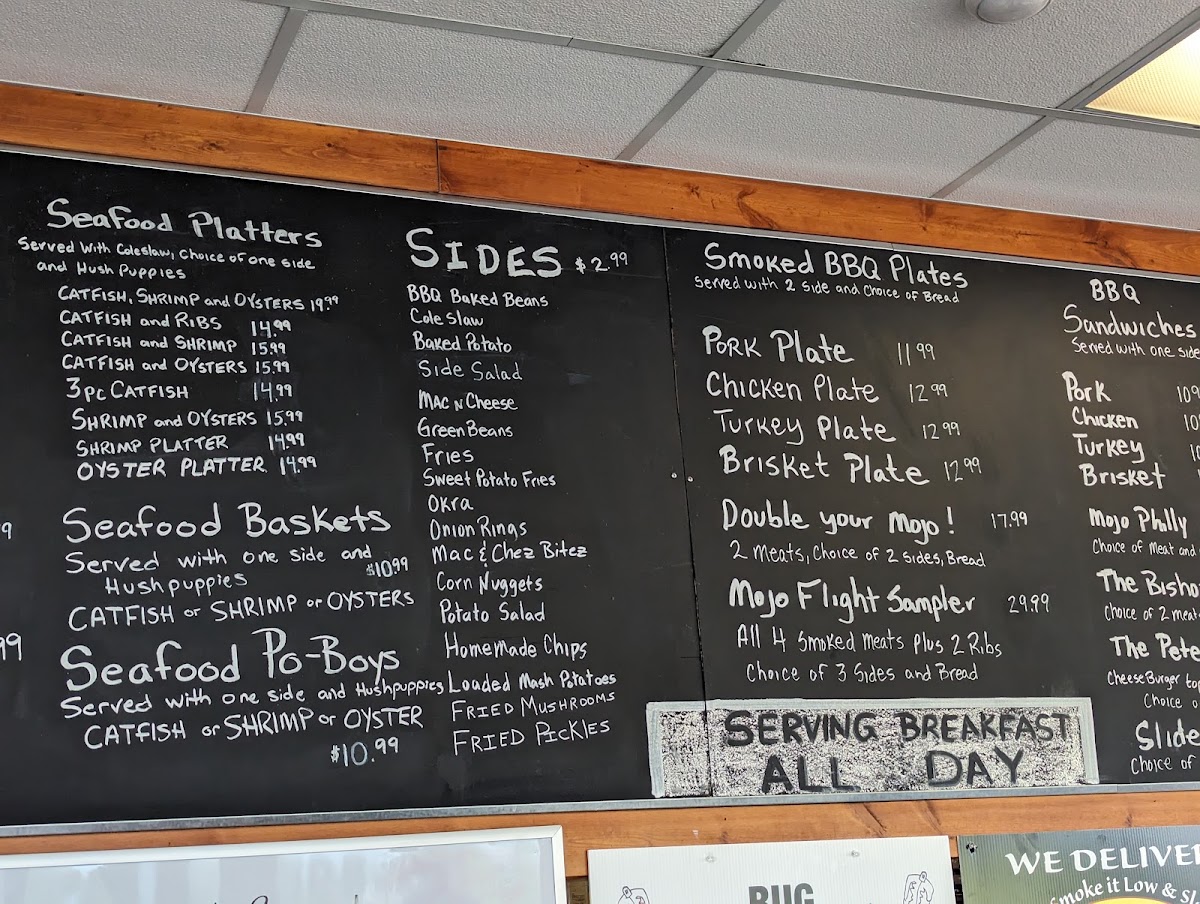 Seafood Platters
Served with Coleslaw, Choice of one side
and Hush Puppies
CATFISH, SHRIMP and OYSTERS 19.99
CATFISH and RIBS 14.99
CATFISH and SHRIMP 15.99
CATFISH and OYSTERS 15.99
3pc CATFISH 14.99
SHRIMP and OYSTERS 15.99
SHRIMP PLATTER 14.99
OYSTER PLATTER 14.99
Seafood Baskets
Served with one side and
Hushpuppies $10.99
CATFISH or SHRIMP or OYSTERS
Seafood Po-Boys
Served with one side and Hushpuppies
CATFISH or SHRIMP or OYSTER
$10.99
SIDES $2.99
BBQ Baked Beans
Cole Slaw
Baked Potato
Side Salad
Mac N Cheese
Green Beans
Fries
Sweet Potato Fries
Okra
Onion Rings
Mac & Chez Bitez
Corn Nuggets
Potato Salad
HomeMade Chips
Loaded Mash Potatoes
FRIED MUSHROOMS
FRIED PICKLES
Smoked BBQ Plates
Served with 2 side and Choice of Bread
Pork Plate 11.99
Chicken Plate 12.99
Turkey Plate 12.99
Brisket Plate 12.99
Double your Mojo! 17.99
2 Meats, Choice of 2 Sides, Bread
Mojo Flight Sampler 29.99
All 4 Smoked Meats Plus 2 Ribs
Choice of 3 Sides and Bread
SERVING BREAKFAST
ALL DAY
BBQ
Sandwiches
Served with one side
Pork
Chicken
Turkey
Brisket
Mojo Philly
Choice of Meat and
The
Choice of 2 meat
The Pete
CheeseBurger
Choice
Choice of
BUG
WE
Smoke it Low &